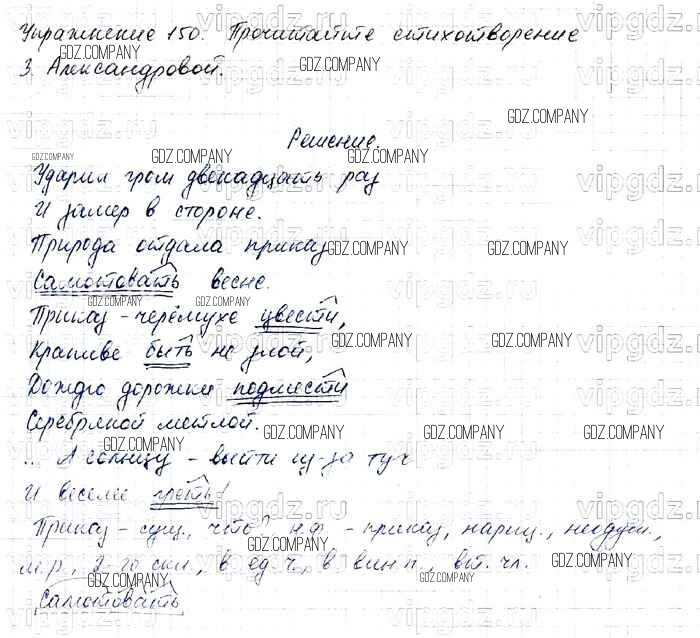 Упражнение 150. Прочитайте стихотворение
З. Александровой.
Решение.
Ударил гром двенадцать раз
И замер в стороне.
Природа отдала приказ
Салютовать весне.
Приказ - черёмухе цвести,
Крапиве быть не злой,
Дождю дорожки подмести
Серебряной метлой.
... А солнцу - выйти из-за туч
И веселее греть!
Приказ - сущ., что? н.ф. - приказ, нариц., неодуш.,
м.р., 2-го скл., в ед.ч., в вин.п., вт. чл.
Салютовать
GDZ.COMPANY
vipgdz.ru